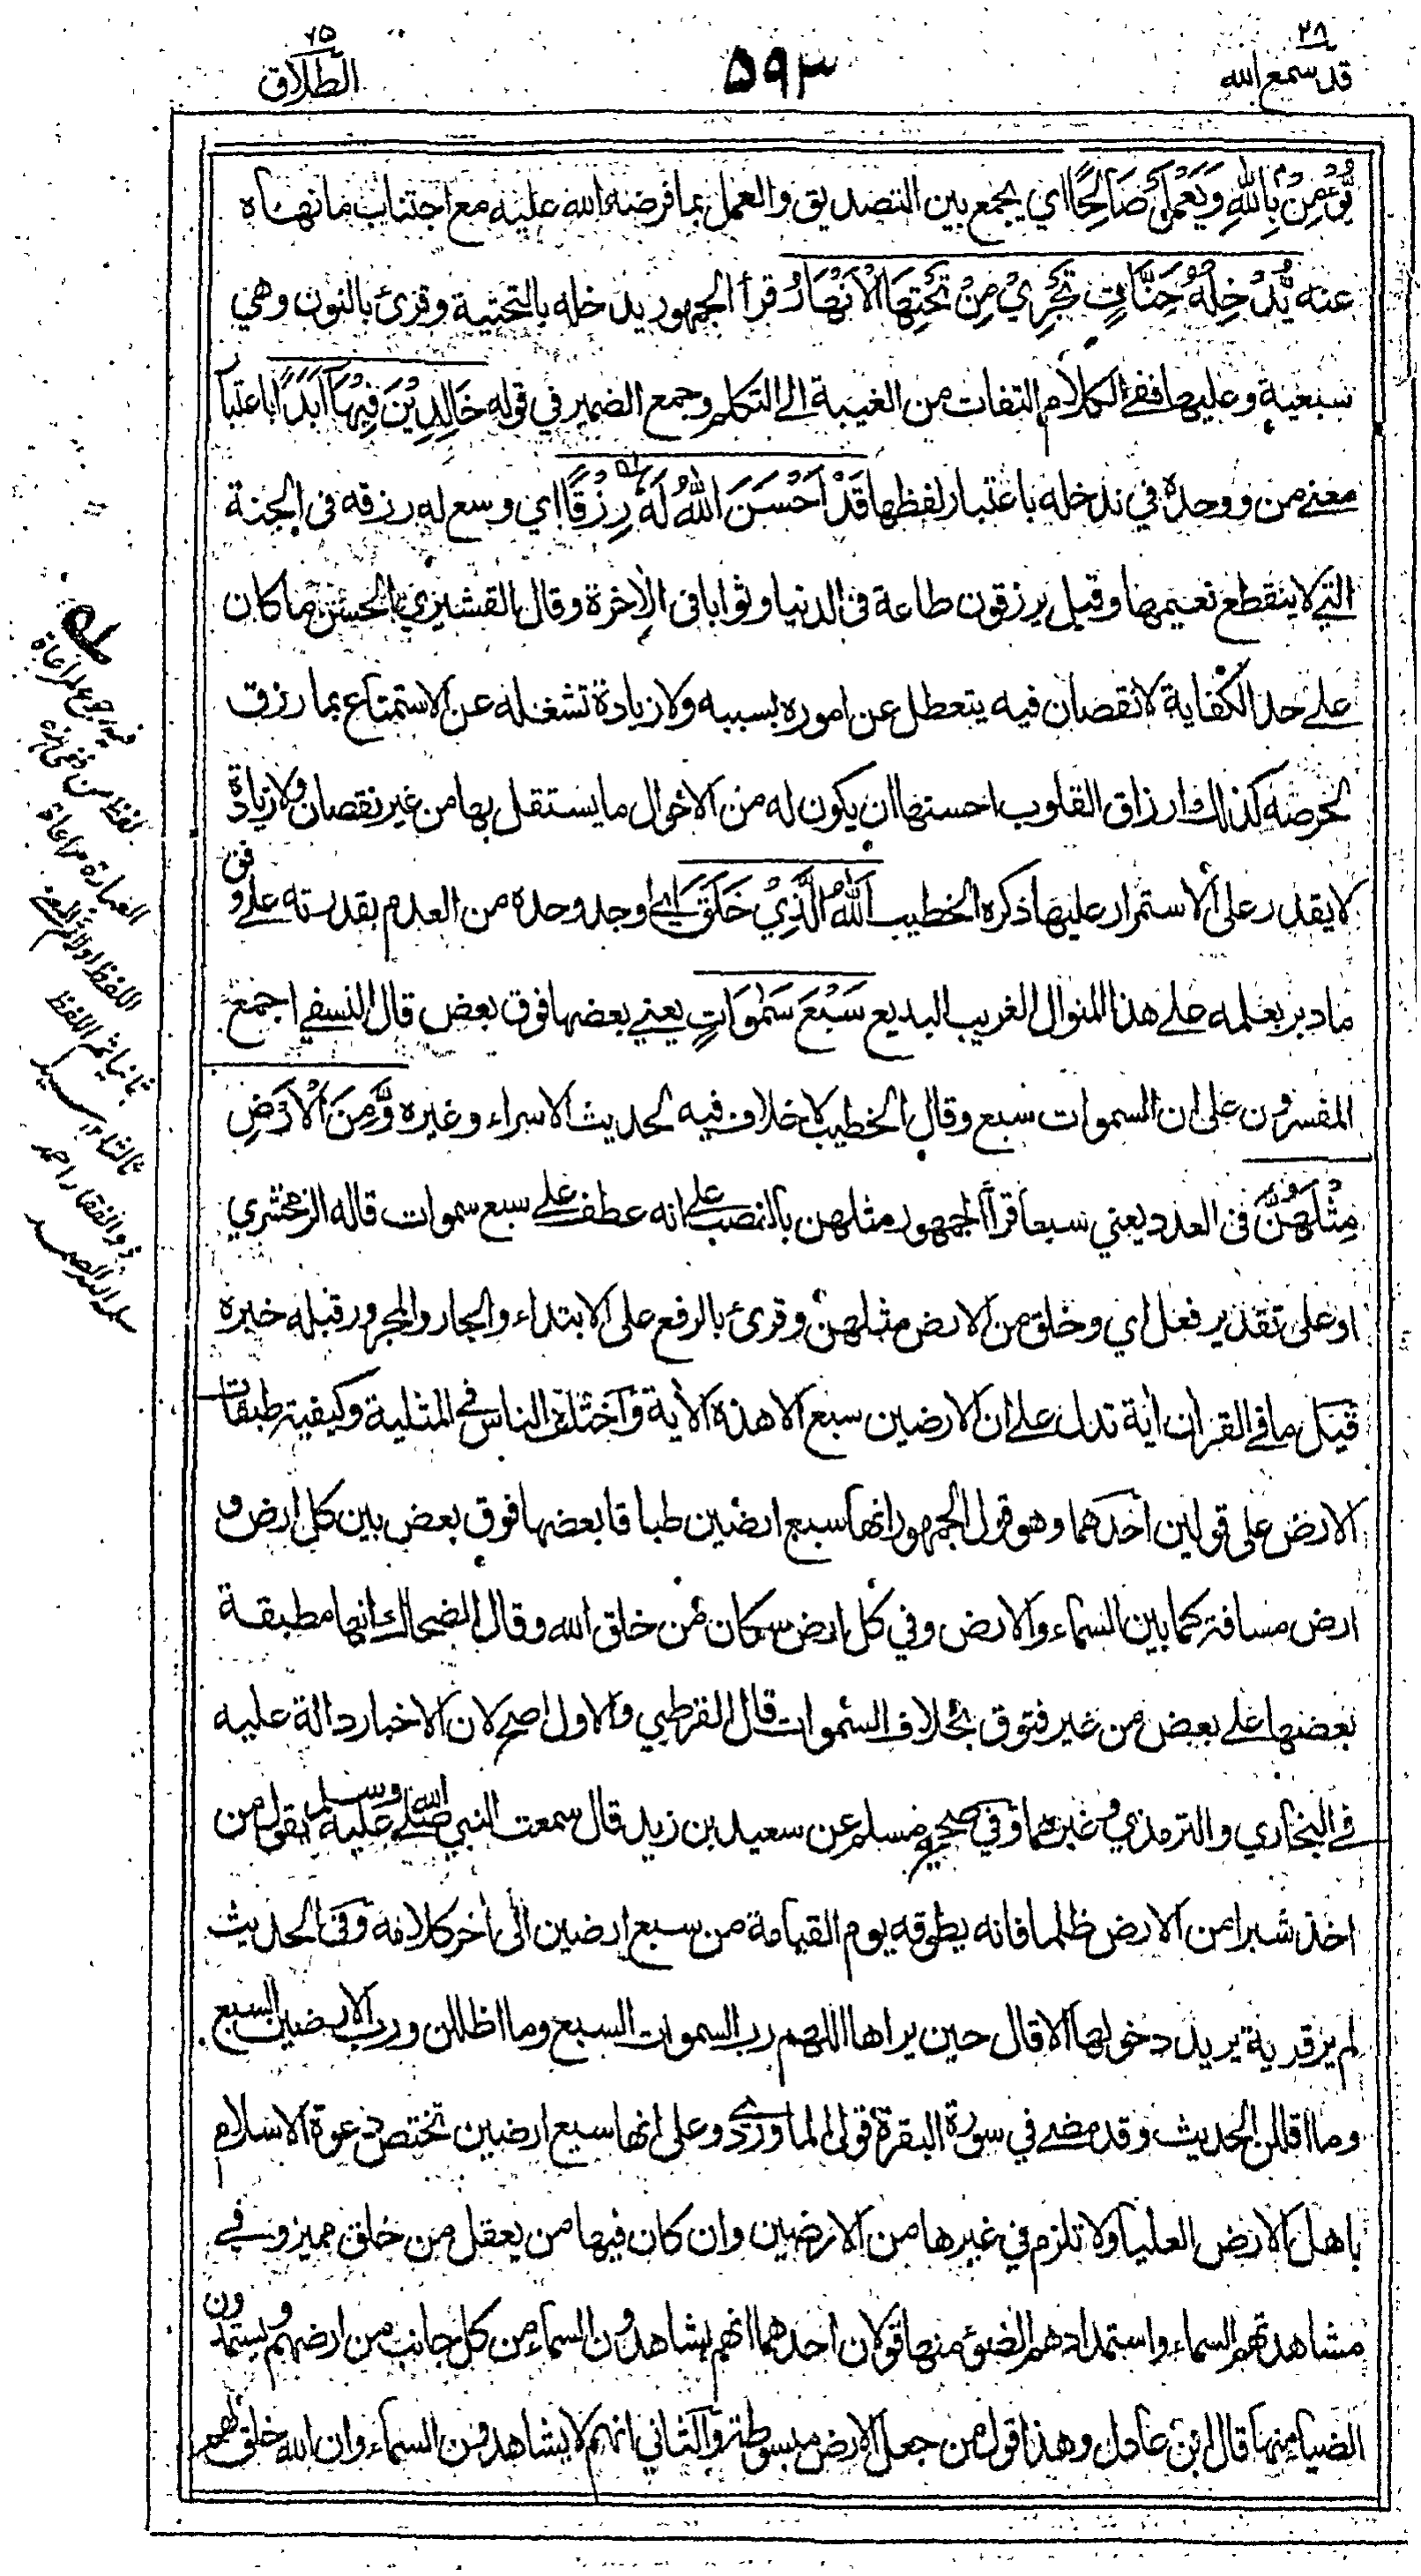 ٢٨
قد سمع الله
٥٩٣
٦٥
الطلاق
يُّؤْمِنْ بِاللهِ وَيَعْمَلْ صَالِحًا اي يجمع بين التصديق والعمل بما فرضه الله عليه مع اجتناب ما نهاه
عنه يُّدْخِلْهُ جَنَّاتٍ تَجْرِيْ مِنْ تَحْتِهَا الْاَنْهَارُ قرأ الجمهور يدخله بالتحتية وقرئ بالنون وهي
سبعية وعليها ففي الكلام التفات من الغيبة الى التكلم وجمع الضمير في قوله خَالِدِيْنَ فِيْهَا اَبَدًا باعتبار
معنے من ووحده في ندخله باعتبار لفظها قَدْ اَحْسَنَ اللهُ لَهٗ رِزْقًا اي وسع له رزقه فى الجنة
التي لا ينقطع نعيمها وقيل يرزقون طاعة فى الدنيا وثوابا فى الاخرة وقال القشيري الحسن ما كان
على حد الكفاية لا نقصان فيه يتعطل عن اموره بسببه ولا زيادة تشغله عن الاستمتاع بما رزق
لحرصه كذلك ارزاق القلوب احسنها ان يكون له من الاحوال ما يستقل بها من غير نقصان ولا زيادة
لا يقدر على الاستمرار عليها ذكره الخطيب اَللهُ الَّذِيْ خَلَقَ اي اوجد وحده من العدم بقدرته على وفق
ما دبر بعلمه على هذا المنوال الغريب البديع سَبْعَ سَمٰوَاتٍ يعني بعضها فوق بعض قال النسفي اجمع
المفسرون على ان السموات سبع وقال الخطيب لا خلاف فيه لحديث الاسراء وغيره وَّمِنَ الْاَرْضِ
مِثْلَهُنَّ فى العدد يعني سبعا قرأ الجمهور مثلهن بالنصب على انه عطف على سبع سموات قاله الزمخشري
او على تقدير فعل اي وخلق من الارض مثلهن وقرئ بالرفع على الابتداء والجار والمجرور قبله خبره
قيل ما في القران اية تدل على ان الارضين سبع الا هذه الاية واختلف الناس في المثلية وكيفية طبقات
الارض على قولين احدهما وهو قول الجمهور انها سبع ارضين طباقا بعضها فوق بعض بين كل ارض و
ارض مسافة كما بين السماء والارض وفي كل ارض سكان من خلق الله وقال الضحاك انها مطبقة
بعضها على بعض من غير فتوق بخلاف السموات قال القرطبي والاول اصح لان الاخبار دالة عليه
في البخاري والترمذي وغيرهما وفي صحيح مسلم عن سعيد بن زيد قال سمعت النبي صلى الله عليه وسلم يقول من
اخذ شبرا من الارض ظلما فانه يطوقه يوم القيامة من سبع ارضين الى اخر كلامه وفى الحديث
لم ير قرية يريد دخولها الا قال حين يراها اللهم رب السموات السبع وما اظللن ورب الارضين السبع
وما اقللن الحديث وقد مضى في سورة البقرة قول الماوردي وعلى انها سبع ارضين تختص دعوة الاسلام
باهل الارض العليا ولا تلزم في غيرها من الارضين وان كان فيها من يعقل من خلق مميز وفي
مشاهدتهم السماء واستمدادهم الضوء منها قولان احدهما انهم يشاهدون السماء من كل جانب من ارضهم ويستمدون
الضياء منها قال ابن عادل وهذا قول من جعل الارض مبسوطة والثاني انهم لا يشاهدون السماء وان الله خلق لهم
فيه رجوع لمراعاة
لفظ من ففى هذه
العبارة مراعاة
اللفظ اولا ثم المعنى
ثانيا ثم اللفظ
ثالثا
ذو الفقار احمد
سلمه الله الصمد